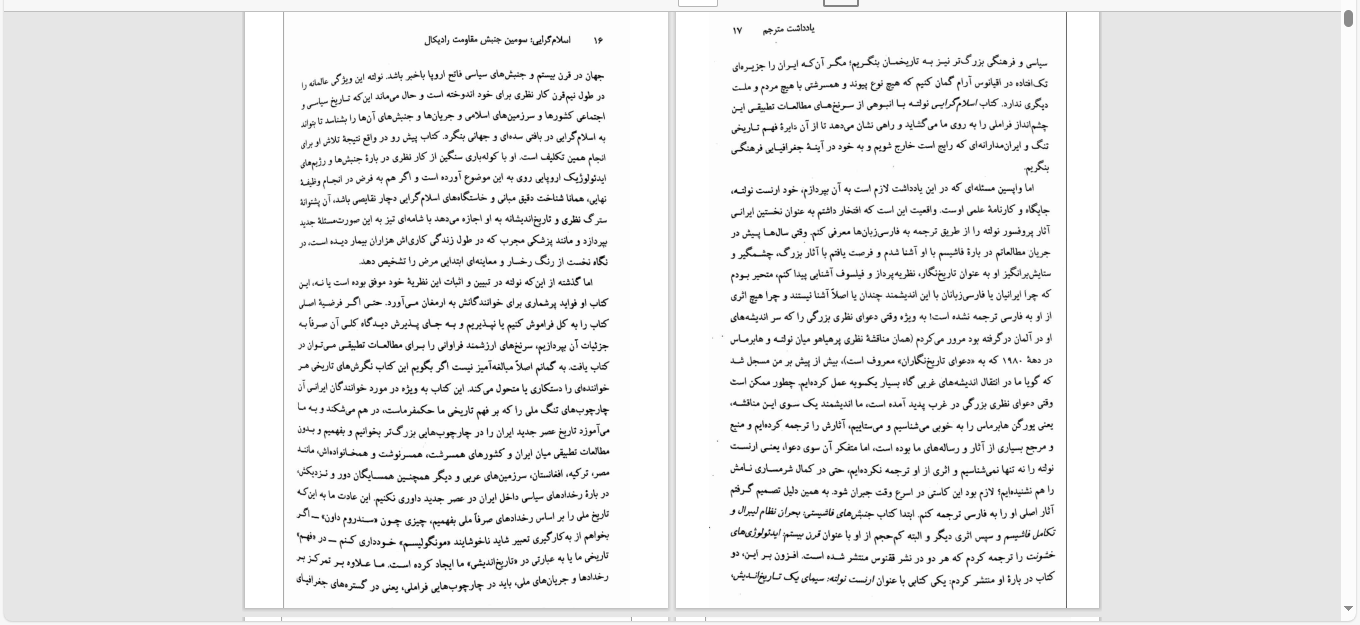 ۱۶ اسلام‌گرایی؛ سومین جنبش مقاومت رادیکال
جهان در قرن بیستم و جنبش‌های سیاسی فاتح اروپا باخبر باشد. نولته این ویژگی عالمانه را
در طول نیم‌قرن کار نظری برای خود اندوخته است و حال می‌ماند این‌که تاریخ سیاسی و
اجتماعی کشورها و سرزمین‌های اسلامی و جریان‌ها و جنبش‌های آن‌ها را بشناسد تا بتواند
به اسلام‌گرایی در بافتی سده‌ای و جهانی بنگرد. کتاب پیش رو در واقع نتیجهٔ تلاش او برای
انجام همین تکلیف است. او با کوله‌باری سنگین از کار نظری در بارهٔ جنبش‌ها و رژیم‌های
ایدئولوژیک اروپایی روی به این موضوع آورده است و اگر هم به فرض در انجام وظیفهٔ
نهایی، همانا شناخت دقیق مبانی و خاستگاه‌های اسلام‌گرایی دچار نقایصی باشد، آن پشتوانهٔ
سترگ نظری و تاریخ‌اندیشانه به او اجازه می‌دهد با شامه‌ای تیز به این صورت‌مسئلهٔ جدید
بپردازد و مانند پزشکی مجرب که در طول زندگی کاری‌اش هزاران بیمار دیده است، در
نگاه نخست از رنگ رخسار و معاینه‌ای ابتدایی مرض را تشخیص دهد.
اما گذشته از این‌که نولته در تبیین و اثبات این نظریهٔ خود موفق بوده است یا نه، این
کتاب او فواید پرشماری برای خوانندگانش به ارمغان می‌آورد. حتی اگر فرضیهٔ اصلی
کتاب را به کل فراموش کنیم یا نپذیریم و به جای پذیرش دیدگاه کلی آن صرفاً به
جزئیات آن بپردازیم، سرنخ‌های ارزشمند فراوانی را برای مطالعات تطبیقی می‌توان در
کتاب یافت. به گمانم اصلاً مبالغه‌آمیز نیست اگر بگویم این کتاب نگرش‌های تاریخی هر
خواننده‌ای را دستکاری یا متحول می‌کند. این کتاب به ویژه در مورد خوانندگان ایرانی آن
چارچوب‌های تنگ ملی را که بر فهم تاریخی ما حکمفرماست، در هم می‌شکند و به ما
می‌آموزد تاریخ عصر جدید ایران را در چارچوب‌هایی بزرگ‌تر بخوانیم و بفهمیم و بدون
مطالعات تطبیقی میان ایران و کشورهای همسرشت، همسرنوشت و همخانواده‌اش، مانند
مصر، ترکیه، افغانستان، سرزمین‌های عربی و دیگر همچنین همسایگان دور و نزدیکش،
در بارهٔ رخدادهای سیاسی داخل ایران در عصر جدید داوری نکنیم. این عادت ما به این‌که
تاریخ ملی را بر اساس رخدادهای صرفاً ملی بفهمیم، چیزی چون «سندروم داون» ــ اگر
بخواهم از به‌کارگیری تعبیر شاید ناخوشایند «مونگولیسم» خودداری کنم ــ در «فهم»
تاریخی ما یا به عبارتی در «تاریخ‌اندیشی» ما ایجاد کرده است. ما علاوه بر تمرکز بر
رخدادها و جریان‌های ملی، باید در چارچوب‌هایی فراملی، یعنی در گستره‌های جغرافیای
یادداشت مترجم ۱۷
سیاسی و فرهنگی بزرگ‌تر نیز به تاریخمان بنگریم؛ مگر آن‌که ایران را جزیره‌ای
تک‌افتاده در اقیانوس آرام گمان کنیم که هیچ نوع پیوند و همسرشتی با هیچ مردم و ملت
دیگری ندارد. کتاب اسلام‌گرایی نولته با انبوهی از سرنخ‌های مطالعات تطبیقی این
چشم‌انداز فراملی را به روی ما می‌گشاید و راهی نشان می‌دهد تا از آن دایرهٔ فهم تاریخی
تنگ و ایران‌مدارانه‌ای که رایج است خارج شویم و به خود در آینهٔ جغرافیایی فرهنگی
بنگریم.
اما واپسین مسئله‌ای که در این یادداشت لازم است به آن بپردازم، خود ارنست نولته،
جایگاه و کارنامهٔ علمی اوست. واقعیت این است که افتخار داشتم به عنوان نخستین ایرانی
آثار پروفسور نولته را از طریق ترجمه به فارسی‌زبان‌ها معرفی کنم. وقتی سال‌ها پیش در
جریان مطالعاتم در بارهٔ فاشیسم با او آشنا شدم و فرصت یافتم با آثار بزرگ، چشمگیر و
ستایش‌برانگیز او به عنوان تاریخ‌نگار، نظریه‌پرداز و فیلسوف آشنایی پیدا کنم، متحیر بودم
که چرا ایرانیان یا فارسی‌زبانان با این اندیشمند چندان یا اصلاً آشنا نیستند و چرا هیچ اثری
از او به فارسی ترجمه نشده است! به ویژه وقتی دعوای نظری بزرگی را که سر اندیشه‌های
او در آلمان درگرفته بود مرور می‌کردم (همان مناقشهٔ نظری پرهیاهو میان نولته و هابرماس
در دههٔ ۱۹۸۰ که به «دعوای تاریخ‌نگاران» معروف است)، بیش از پیش بر من مسجل شد
که گویا ما در انتقال اندیشه‌های غربی گاه بسیار یکسویه عمل کرده‌ایم. چطور ممکن است
وقتی دعوای نظری بزرگی در غرب پدید آمده است، ما اندیشمند یک سوی این مناقشه،
یعنی یورگن هابرماس را به خوبی می‌شناسیم و می‌ستاییم، آثارش را ترجمه کرده‌ایم و منبع
و مرجع بسیاری از آثار و رساله‌های ما بوده است، اما متفکر آن سوی دعوا، یعنی ارنست
نولته را نه تنها نمی‌شناسیم و اثری از او ترجمه نکرده‌ایم، حتی در کمال شرمساری نامش
را هم نشنیده‌ایم؟ لازم بود این کاستی در اسرع وقت جبران شود. به همین دلیل تصمیم گرفتم
آثار اصلی او را به فارسی ترجمه کنم. ابتدا کتاب جنبش‌های فاشیستی: بحران نظام لیبرال و
تکامل فاشیسم و سپس اثری دیگر و البته کم‌حجم از او با عنوان قرن بیستم: ایدئولوژی‌های
خشونت را ترجمه کردم که هر دو در نشر ققنوس منتشر شده است. افزون بر این، دو
کتاب در بارهٔ او منتشر کردم: یکی کتابی با عنوان ارنست نولته: سیمای یک تاریخ‌اندیش،